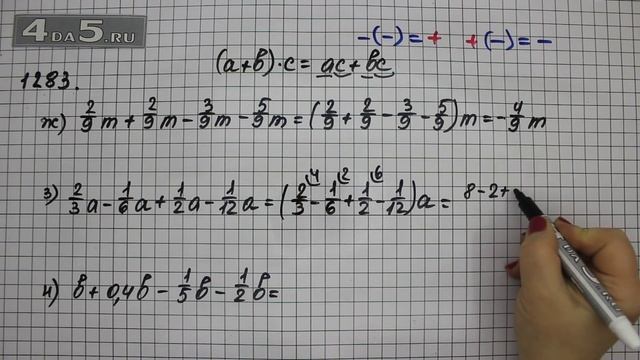 4ДА5.RU
-(-)=+ +(-)=-
(a+b)·c=ac+bc
1283.
ж) 2/9 m + 2/9 m - 3/9 m - 5/9 m = (2/9 + 2/9 - 3/9 - 5/9) m = -4/9 m
з) 2/3 a - 1/6 a + 1/2 a - 1/12 a = (2/3 ⁴ - 1/6 ² + 1/2 ⁶ - 1/12) a = 8-2+
и) b + 0,4b - 1/5 b - 1/2 b =